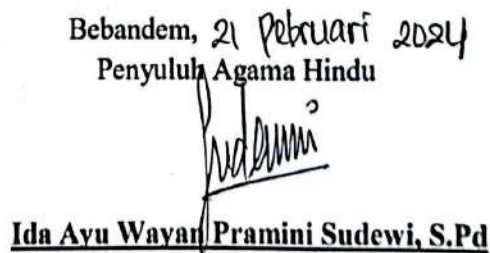 Bebandem, 21 Pebruari 2024
Penyuluh Agama Hindu
Ida Ayu Wayan Pramini Sudewi, S.Pd